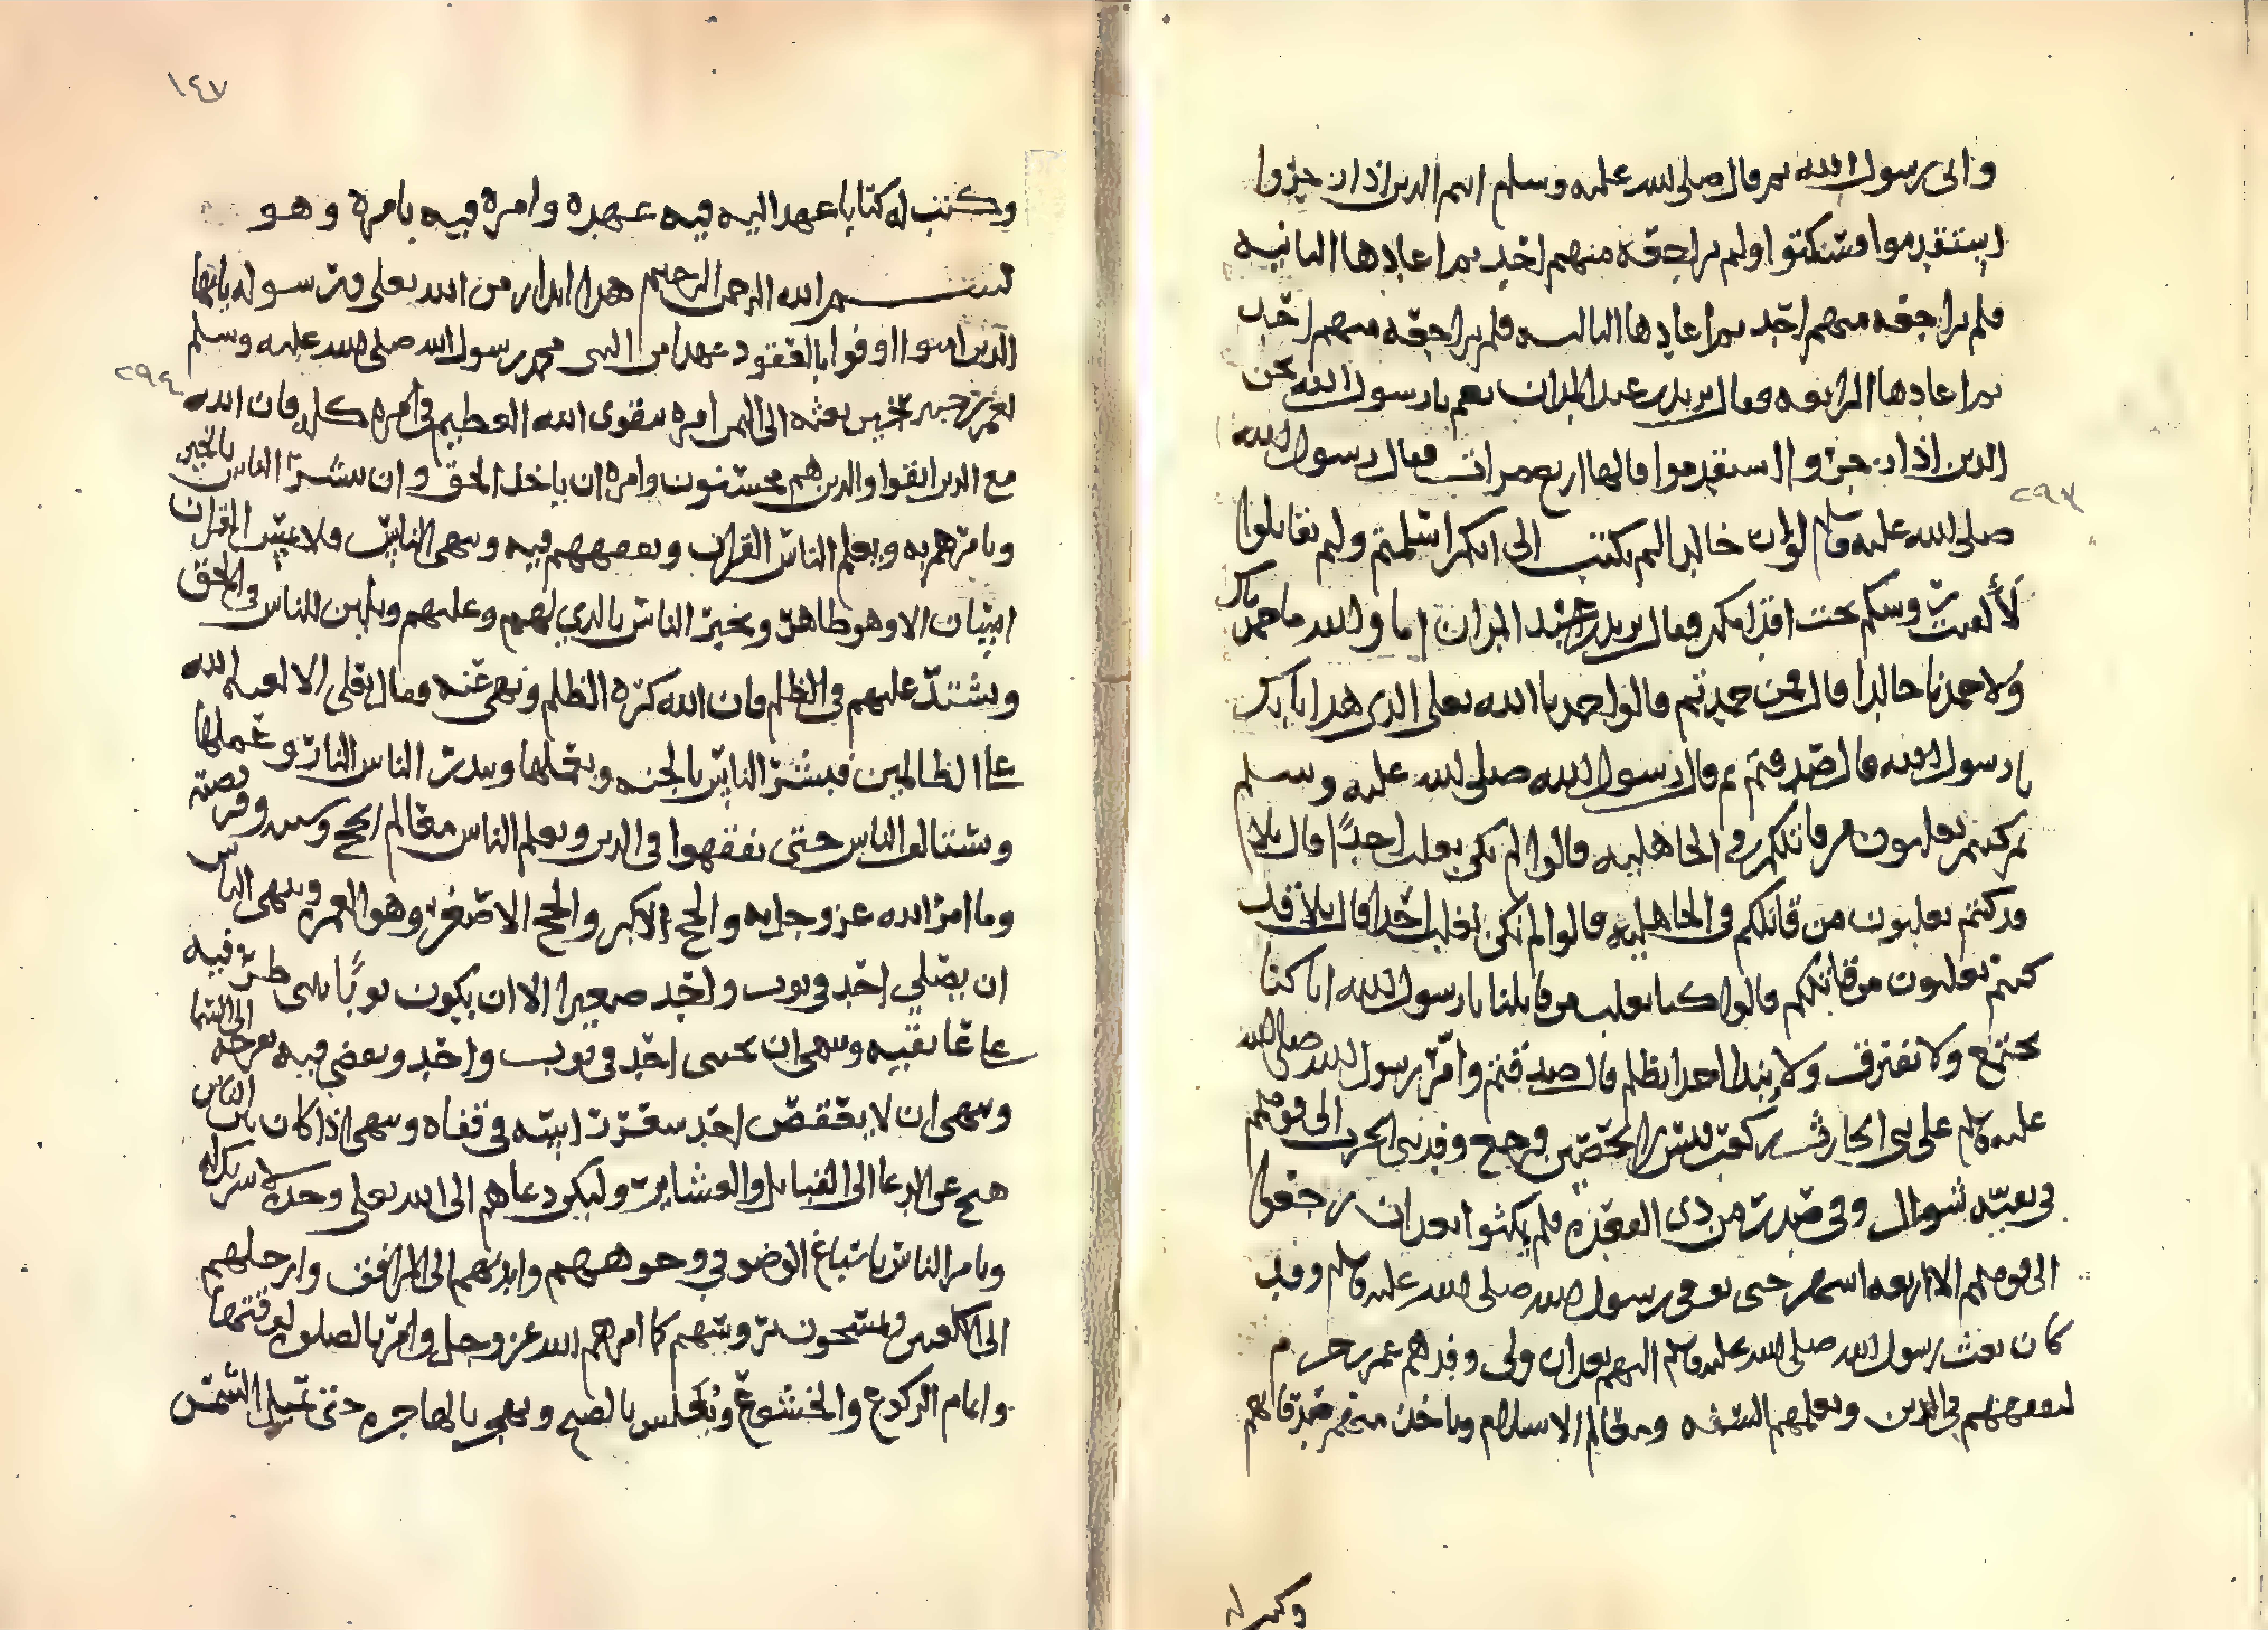 وانى رسول الله ثم قال صلى الله عليه وسلم انتم الذين اذا زجروا
استقدموا فسكتوا ولم يراجعه منهم احد ثم اعادها الثانيه
فلم يراجعه منهم احد ثم اعادها الثالثه فلم يراجعه منهم احد
ثم اعادها الرابعه فقال يزيد بن عبد المدان نعم يا رسول الله نحن
الذين اذا زجروا استقدموا قالها اربع مرات فقال رسول الله
٢٩٣
صلى الله عليه وسلم لو ان خالدا لم يكتب الى انكم اسلمتم ولم تقاتلوا
لألقيت روسكم تحت اقدامكم فقال يزيد بن عبد المدان اما والله ما حمدناك
ولا حمدنا خالدا قال فمن حمدتم قالوا حمدنا الله تعلى الذي هدانا بك
يا رسول الله قال صدقتم ثم قال رسول الله صلى الله عليه وسلم
بم كنتم تغلبون من قاتلكم في الجاهليه قالوا لم نكن نغلب احدًا قال بلا
قد كنتم تغلبون من قاتلكم في الجاهليه قالوا لم نكن نغلب احدا قال بلا قد
كنتم تغلبون من قاتلكم قالوا كنا نغلب من قاتلنا يا رسول الله انا كنا
نجتمع ولا نفترق ولا نبدا احدا بظلم قال صدقتم وامّر رسول الله صلى الله
عليه وسلم على بني الحارث بن كعب قيس بن الحصين فرجع وفد بني الحرث الى قومهم
في بقيّه شوال وفي صدر من ذي القعده فلم يمكثوا بعد ان رجعوا
الى قومهم الا اربعه اشهر حتى توفي رسول الله صلى الله عليه وسلم وقد
كان بعث رسول الله صلى الله عليه وسلم اليهم بعد ان ولى وفدهم عمر بن حزم
ليفقههم في الدين ويعلمهم السنه ومعالم الاسلام وياخذ منهم صدقاتهم
وكتب له
١٤٧
وكتب له كتابا عهد اليه فيه عهده وامره فيه بامره وهو
بسم الله الرحمن الرحيم هذا بيان من الله تعلى ورسوله يايها
الذين امنوا اوفوا بالعقود عهدا من النبي محمد رسول الله صلى الله عليه وسلم
٢٩٤
لعمر بن حزم حين بعثه الى اليمن امره بتقوى الله العظيم في امره كله فان الله
مع الذين اتقوا والذين هم محسنون وامره ان ياخذ الحق وان يبشر الناس بالخير
ويامرهم به ويعلم الناس القران ويفقههم فيه وينهى الناس فلا يمس القران
انسان الا وهو طاهر ويخبر الناس بالذي لهم وعليهم ويلين للناس في الحق
ويشتدّ عليهم في الظلم فان الله كره الظلم ونهى عنه وقال تعلى الا لعنه الله
على الظالمين فيبشر الناس بالجنه وبعملها وينذر الناس النار وعملها
ويستالف الناس حتى يفقهوا في الدين ويعلم الناس معالم الحج وسنته وفريضته
وما امر الله عز وجل به والحج الاكبر والحج الاصغر وهو العمره وينهى الناس
ان يصلي احد في ثوب واحد صغيرا الا ان يكون ثوبًا يثنى طرفيه
على عاتقيه وينهى ان يحتبي احد في ثوب واحد ويفضي فيه بفرجه الى السما
وينهى ان لا يعقص احد شعر راسه في قفاه وينهى اذا كان بين الناس
هيج عن الدعا الى القبايل والعشاير وليكن دعاهم الى الله تعلى وحده لا شريك له
ويامر الناس باسباغ الوضو في وجوههم وايديهم الى المرافق وارجلهم
الى الكعبين ويمسحون بروسهم كما امرهم الله عز وجل وامر بالصلوه لوقتها
واتمام الركوع والخشوع ويغلس بالصبح ويهجر بالهاجره حتى تميل الشمس